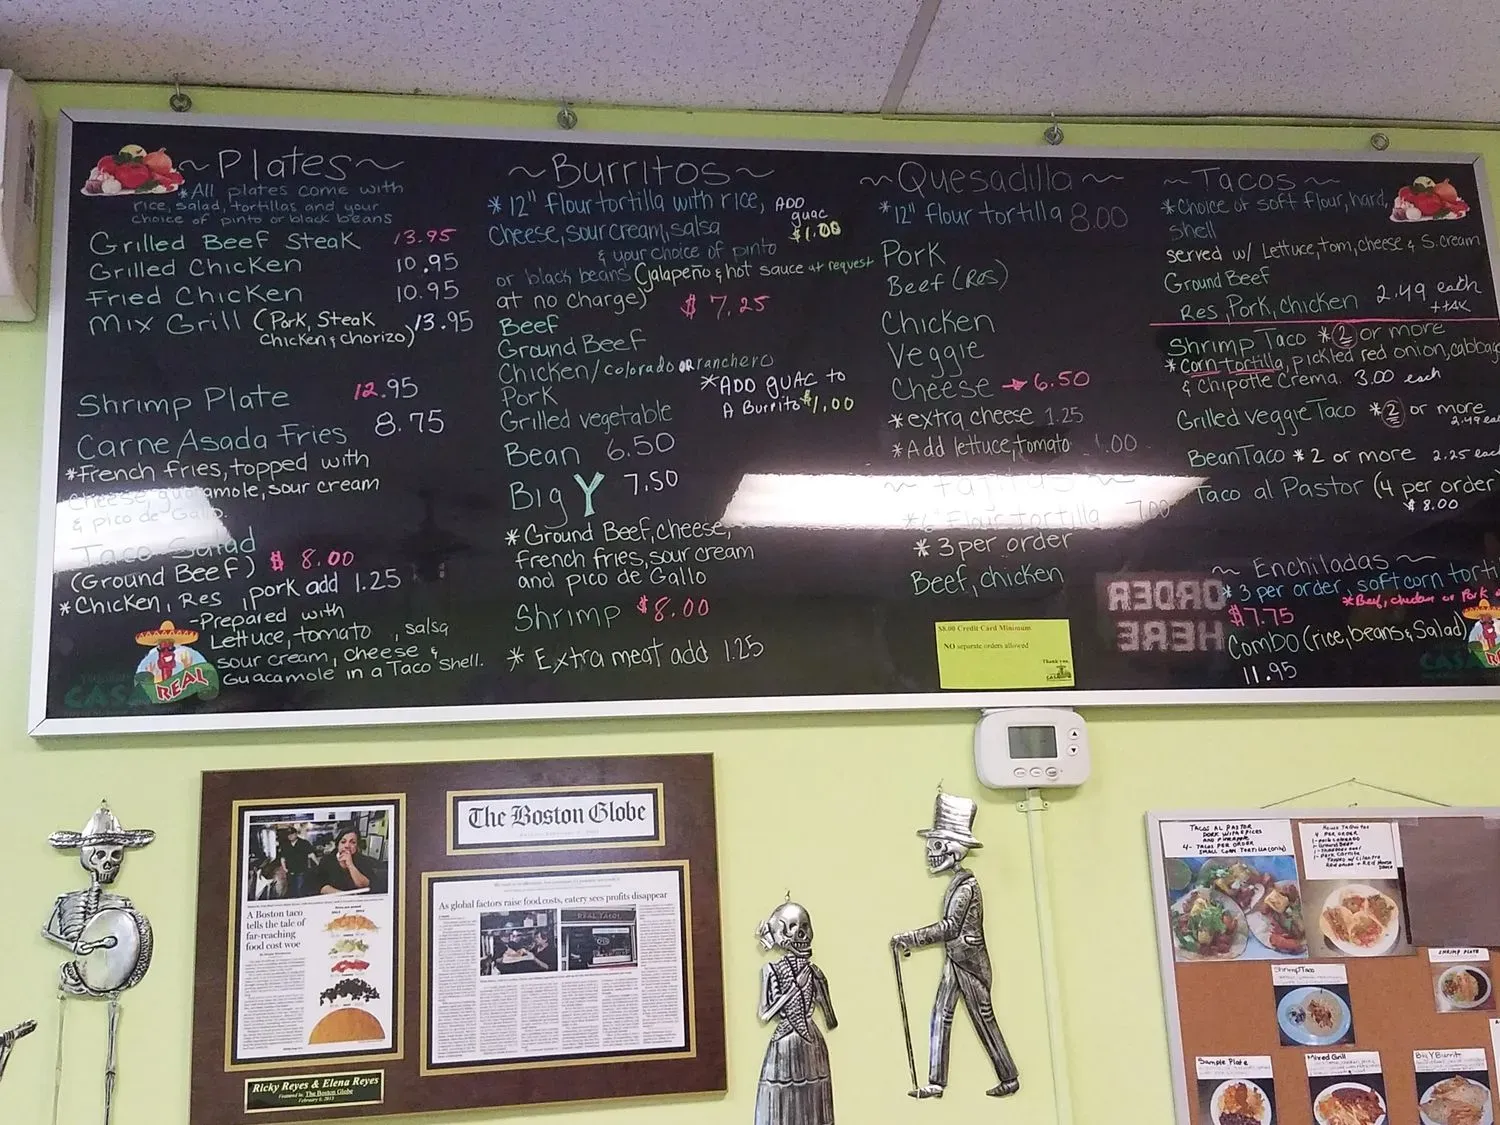 ~Plates~
*All plates come with
rice, salad, tortillas and your
choice of pinto or black beans
Grilled Beef Steak 13.95
Grilled Chicken 10.95
Fried Chicken 10.95
Mix Grill (Pork, Steak 13.95
Chicken & chorizo)
Shrimp Plate 12.95
Carne Asada Fries 8.75
*French fries, topped with
cheese, guacamole, sour cream
& pico de Gallo.
Taco Salad
(Ground Beef) $ 8.00
*Chicken, Res, pork add 1.25
-Prepared with
Lettuce, tomato, salsa
sour cream, cheese &
Guacamole in a Taco Shell.
CASA
REAL
~Burritos~
*12" flour tortilla with rice,
cheese, sour cream, salsa
& your choice of pinto
or black beans (jalapeño & hot sauce at request
at no charge) $ 7.25
ADD
guac
$1.00
Beef
Ground Beef
Chicken/colorado OR ranchero
Pork
Grilled vegetable
*ADD guac to
A Burrito $1.00
Bean 6.50
Big Y 7.50
*Ground Beef, cheese,
french fries, sour cream
and pico de Gallo
Shrimp $8.00
* Extra meat add 1.25
~Quesadilla~
*12" flour tortilla 8.00
Pork
Beef (Res)
Chicken
Veggie
Cheese → 6.50
*extra cheese 1.25
*Add lettuce, tomato 1.00
~Fajitas~
*6" Flour tortilla 7.00
* 3 per order
Beef, chicken
$8.00 Credit Card Minimum
NO separate orders allowed
Thank you,
ORDER
HERE
~Tacos~
*choice of soft flour, hard,
shell
served w/ Lettuce, tom, cheese & S. cream
Ground Beef
Res, Pork, chicken 2.49 each
+tax
Shrimp Taco *2 or more
*Corn tortilla, pickled red onion, cabbage
& Chipotle Crema. 3.00 each
Grilled veggie Taco *2 or more
2.49 ea
Bean Taco *2 or more 2.25 each
Taco al Pastor (4 per order)
$8.00
~Enchiladas~
*3 per order, soft corn torti
$7.75 *Beef, chicken or Pork
Combo (rice, beans & Salad)
11.95
The Boston Globe
A Boston taco
tells the tale of
far-reaching
food cost woe
As global factors raise food costs, eatery sees profits disappear
REAL TACO
Ricky Reyes & Elena Reyes
Featured in The Boston Globe
February 6, 2013
Tacos al Pastor
Pork with spices
and pineapple
4- Tacos per order
small corn tortilla (only)
4 per order
Shrimp Taco
Shrimp Plate
Sample Plate
Mixed Grill
Big Y Burrito